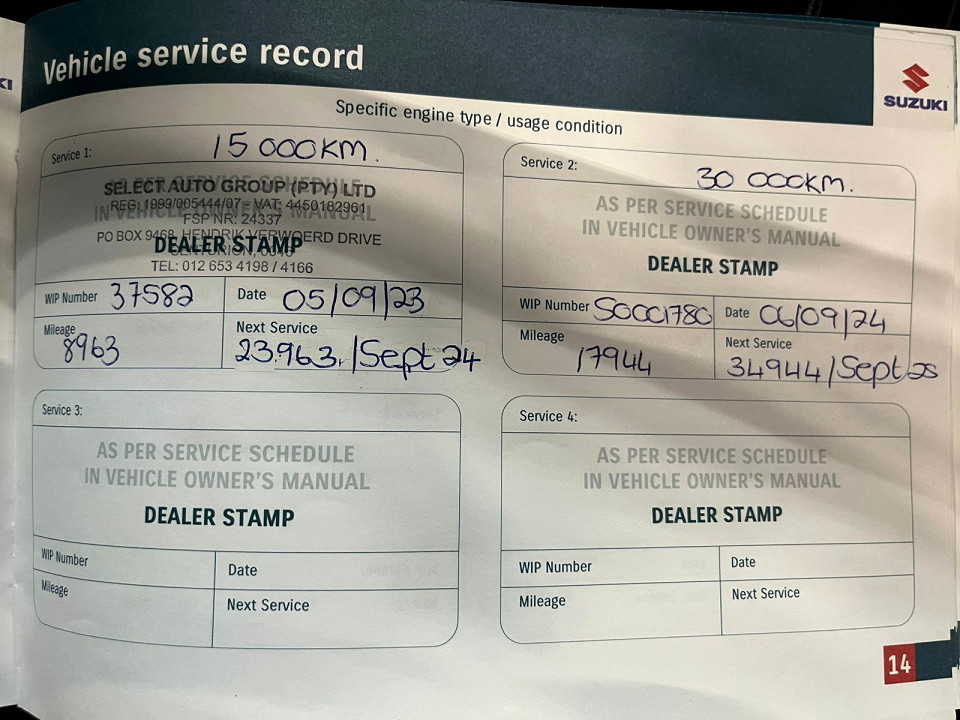 Vehicle service record
SUZUKI
Specific engine type / usage condition
Service 1: 15 000KM.
AS PER SERVICE SCHEDULE
SELECT AUTO GROUP (PTY) LTD
REG: 1999/005444/07 - VAT: 4450182961
IN VEHICLE OWNER'S MANUAL
FSP NR: 24337
PO BOX 9468, HENDRIK VERWOERD DRIVE
DEALER STAMP
CENTURION, 0046
TEL: 012 653 4198 / 4166
WIP Number 37582 Date 05/09/23
Mileage 8963 Next Service 23.963. /Sept 24
Service 2: 30 000KM.
AS PER SERVICE SCHEDULE
IN VEHICLE OWNER'S MANUAL
DEALER STAMP
WIP Number Date 06/09/24
Mileage 17944 Next Service 34944/Sept 25
Service 3:
AS PER SERVICE SCHEDULE
IN VEHICLE OWNER'S MANUAL
DEALER STAMP
WIP Number Date
Mileage Next Service
Service 4:
AS PER SERVICE SCHEDULE
IN VEHICLE OWNER'S MANUAL
DEALER STAMP
WIP Number Date
Mileage Next Service
14